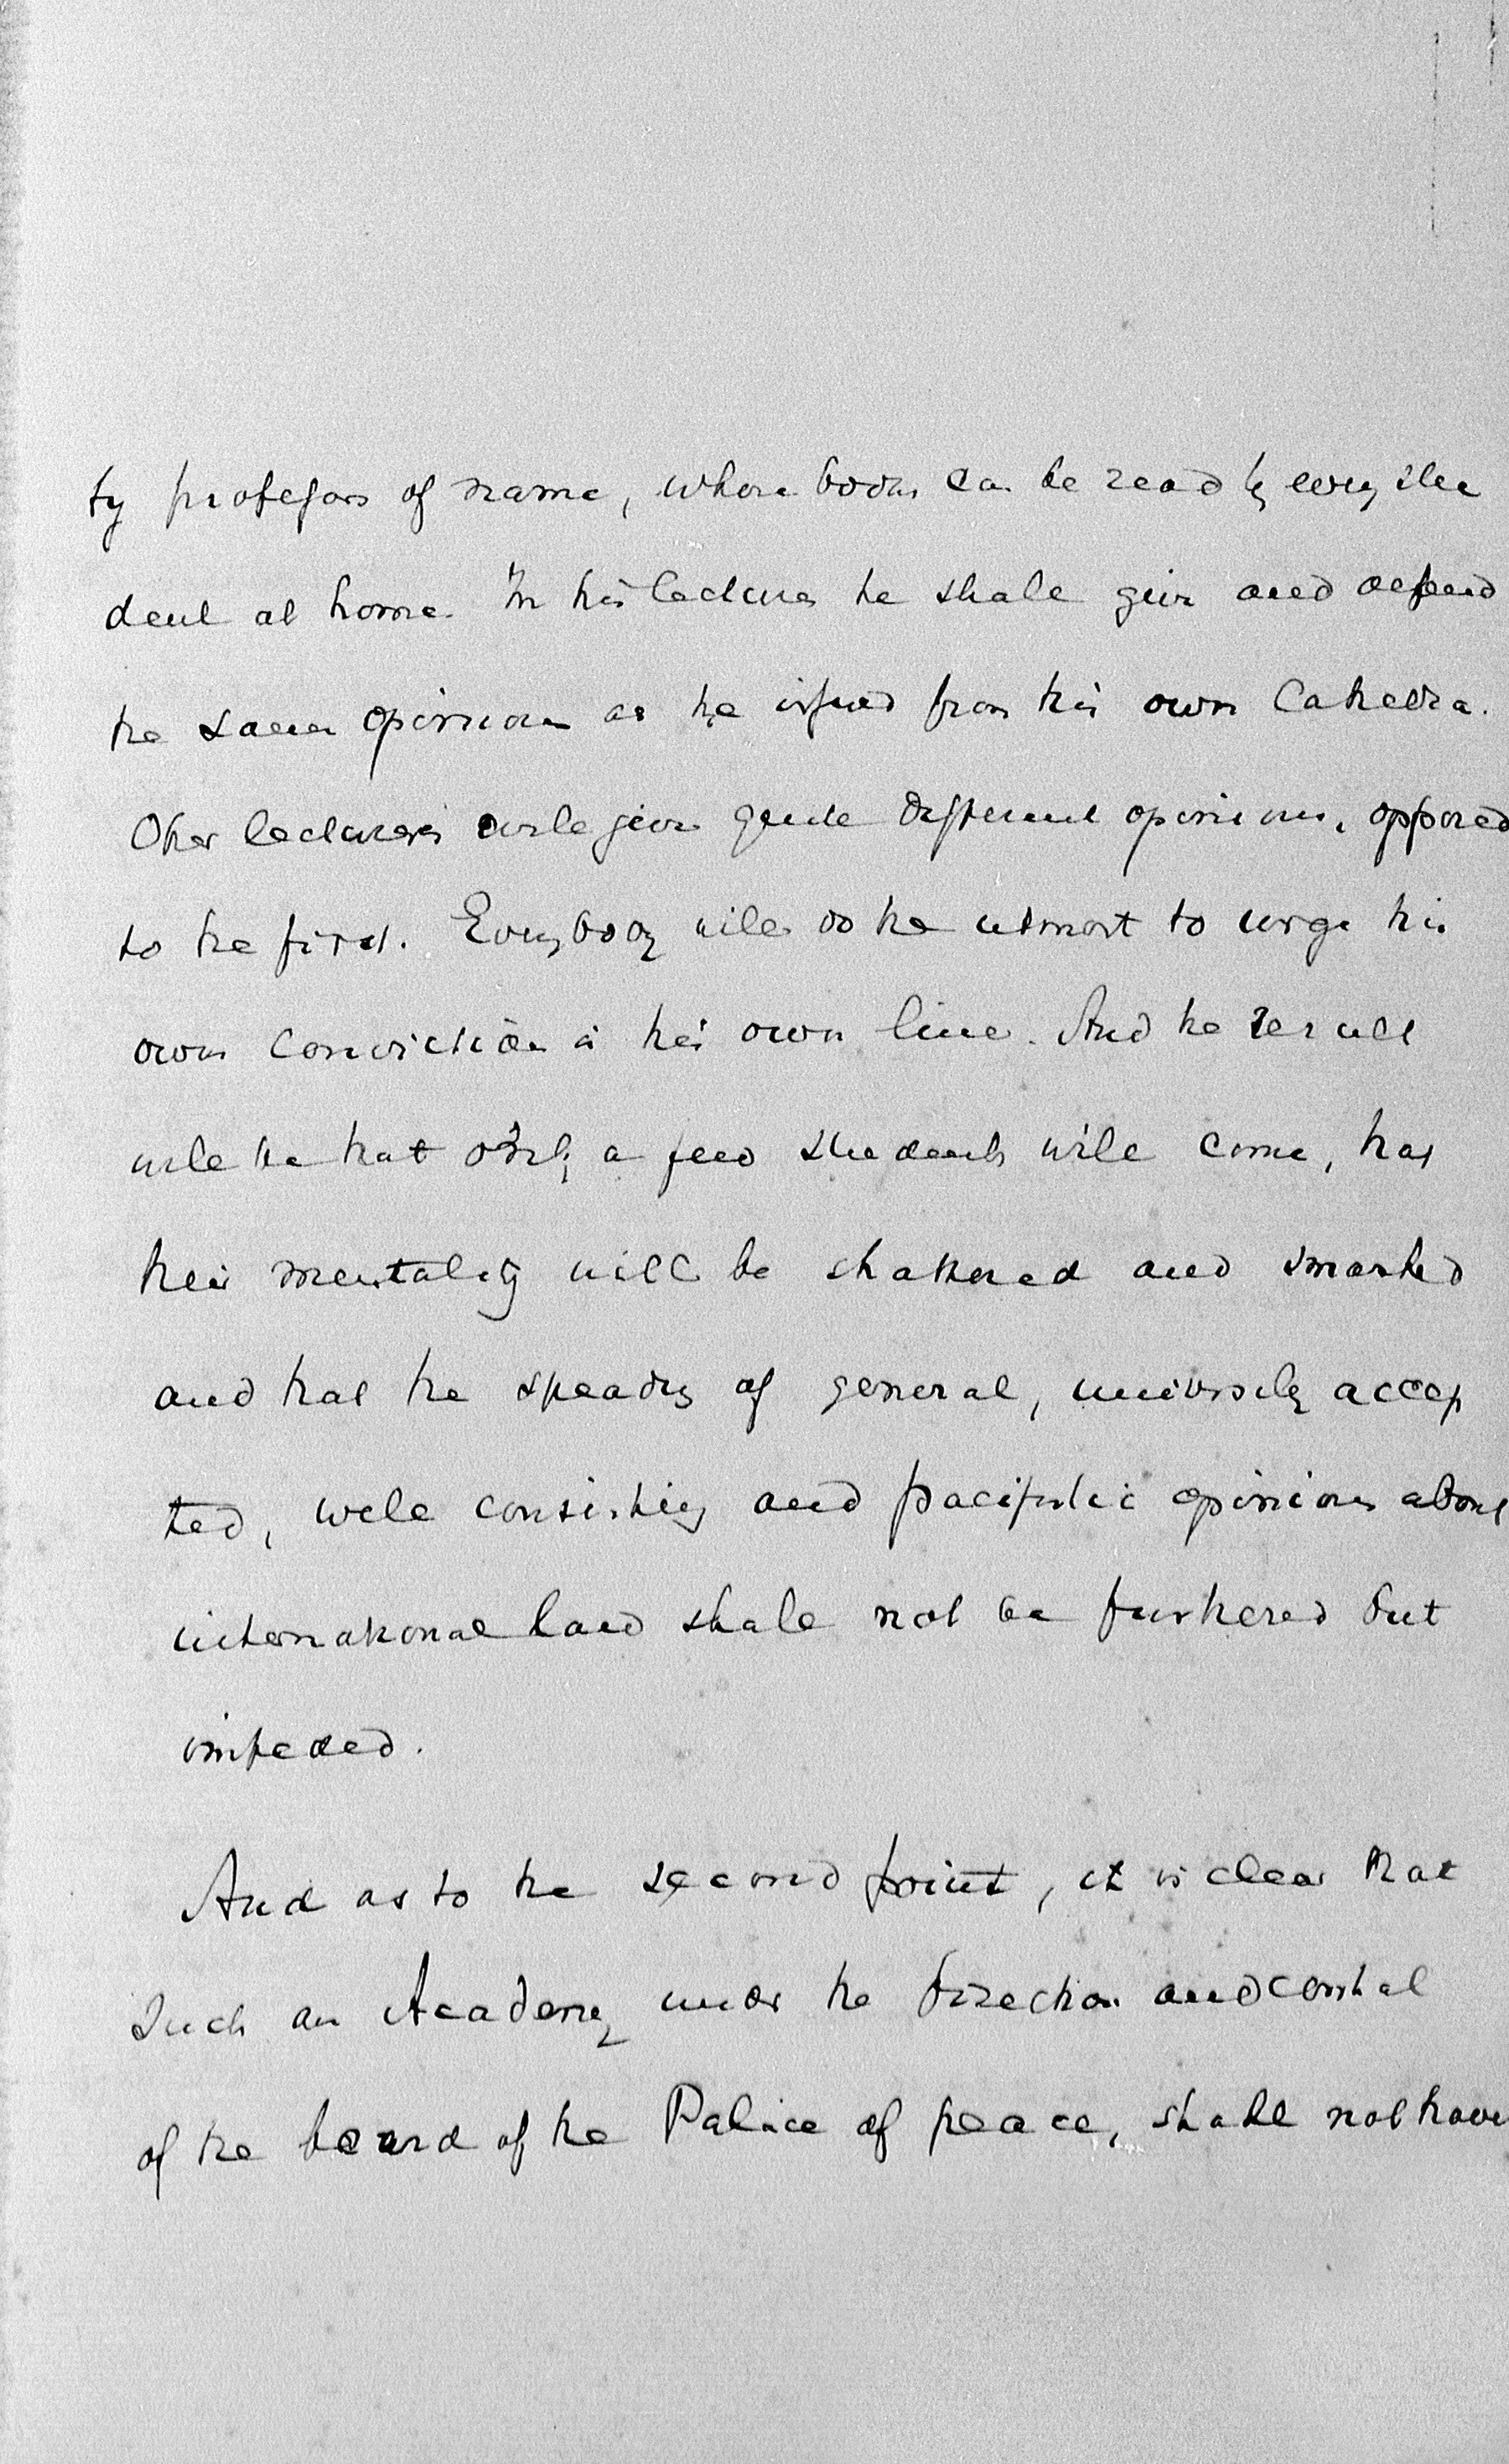 ty professors of name, whose books can be read by every stu
dent at home. In his lectures he shall give and defend
the same opinion as he issued from his own Cathedra.
Other lecturers will give quite different opinions, opposed
to the first. Everybody will do the utmost to urge his
own conviction in his own line. And the result
will be that only a few students will come, that
their mentality will be shattered and smashed
and that the speading of general, universely accep
ted, well consisting and pacifistic opinions about
international law shall not be furthered but
impeded.
And as to the second point, it is clear that
Such an Academy under the direction and control
of the board of the Palace of peace, shall not have